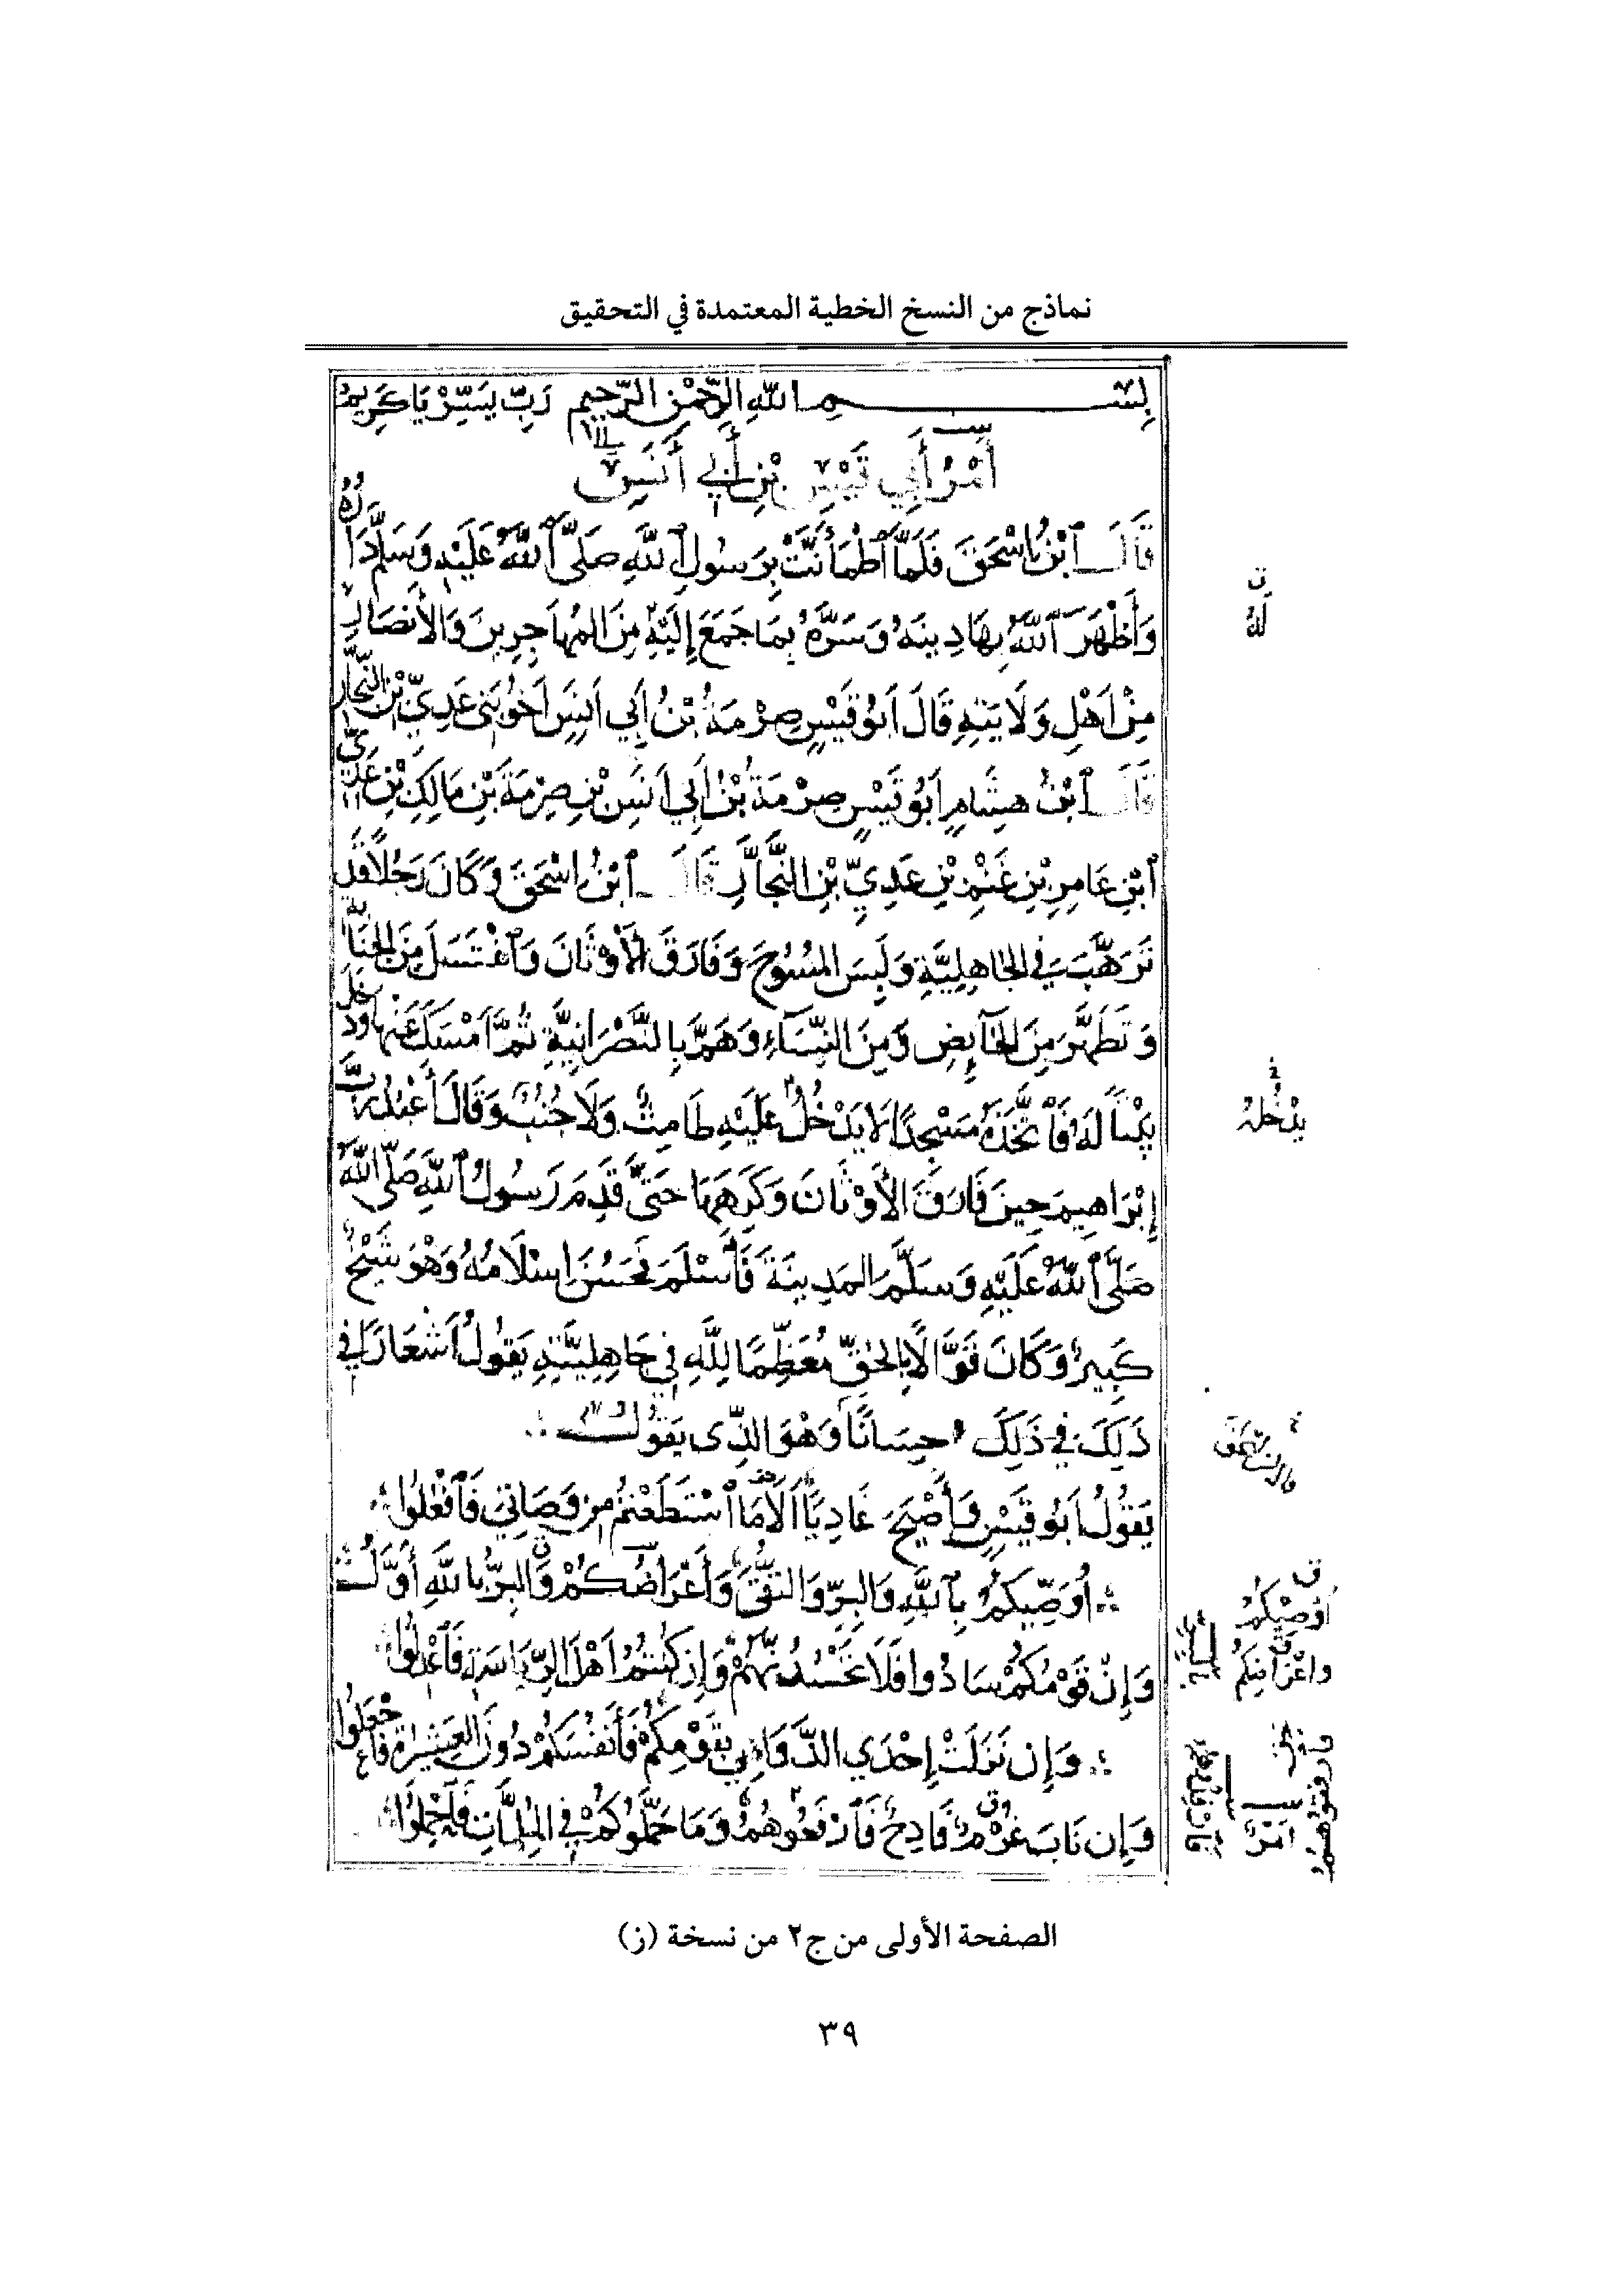 نماذج من النسخ الخطية المعتمدة في التحقيق
بسم الله الرحمن الرحيم رب يسر يا كريم
أمر أبي قيس بن أبي أنس
قال ابن إسحق فلما اطمأنت برسول الله صلى الله عليه وسلم داره
وأظهر الله بها دينه وسره بما جمع إليه من المهاجرين والأنصار
من أهل ولايته قال أبو قيس صرمة بن أبي أنس أخو بني عدي بن النجار
قال ابن هشام أبو قيس صرمة بن أبي أنس بن صرمة بن مالك بن عدي
ابن عامر بن غنم بن عدي بن النجار قال ابن إسحق وكان رجلا قد
ترهب في الجاهلية ولبس المسوح وفارق الأوثان واغتسل من الجنابة
وتطهر من الحائض ومن النساء وهم بالنصرانية ثم أمسك عنها ودخل
بيتا له فاتخذه مسجدا لا يدخل عليه طامث ولا جنب وقال أعبد رب
إبراهيم حين فارق الأوثان وكرهها حتى قدم رسول الله صلى الله
صلى الله عليه وسلم المدينة فأسلم فحسن إسلامه وهو شيخ
كبير وكان قوالا بالحق معظما لله في جاهليته يقول أشعارا في
ذلك في ذلك حسانا وهو الذي يقول
يقول أبو قيس وأصبح غاديا ألا ما استطعتم من وصاتي فافعلوا
أوصيكم بالله والبر والتقى وأعراضكم والبر بالله أول
وإن قومكم سادوا فلا تحسدنهم وإن كنتم أهل الرياسة فاعدلوا
وإن نزلت إحدى الدواهي بقومكم فأنفسكم دون العشيرة فاجعلوا
وإن ناب غرم فادح فارفقوهم وما حملوكم في الملمات فاحملوا
له
يدخله
قال ابن إسحق
أوصيكم
وأعراضكم
فارفقوهم
أمر
الصفحة الأولى من ج٢ من نسخة (ز)
٣٩